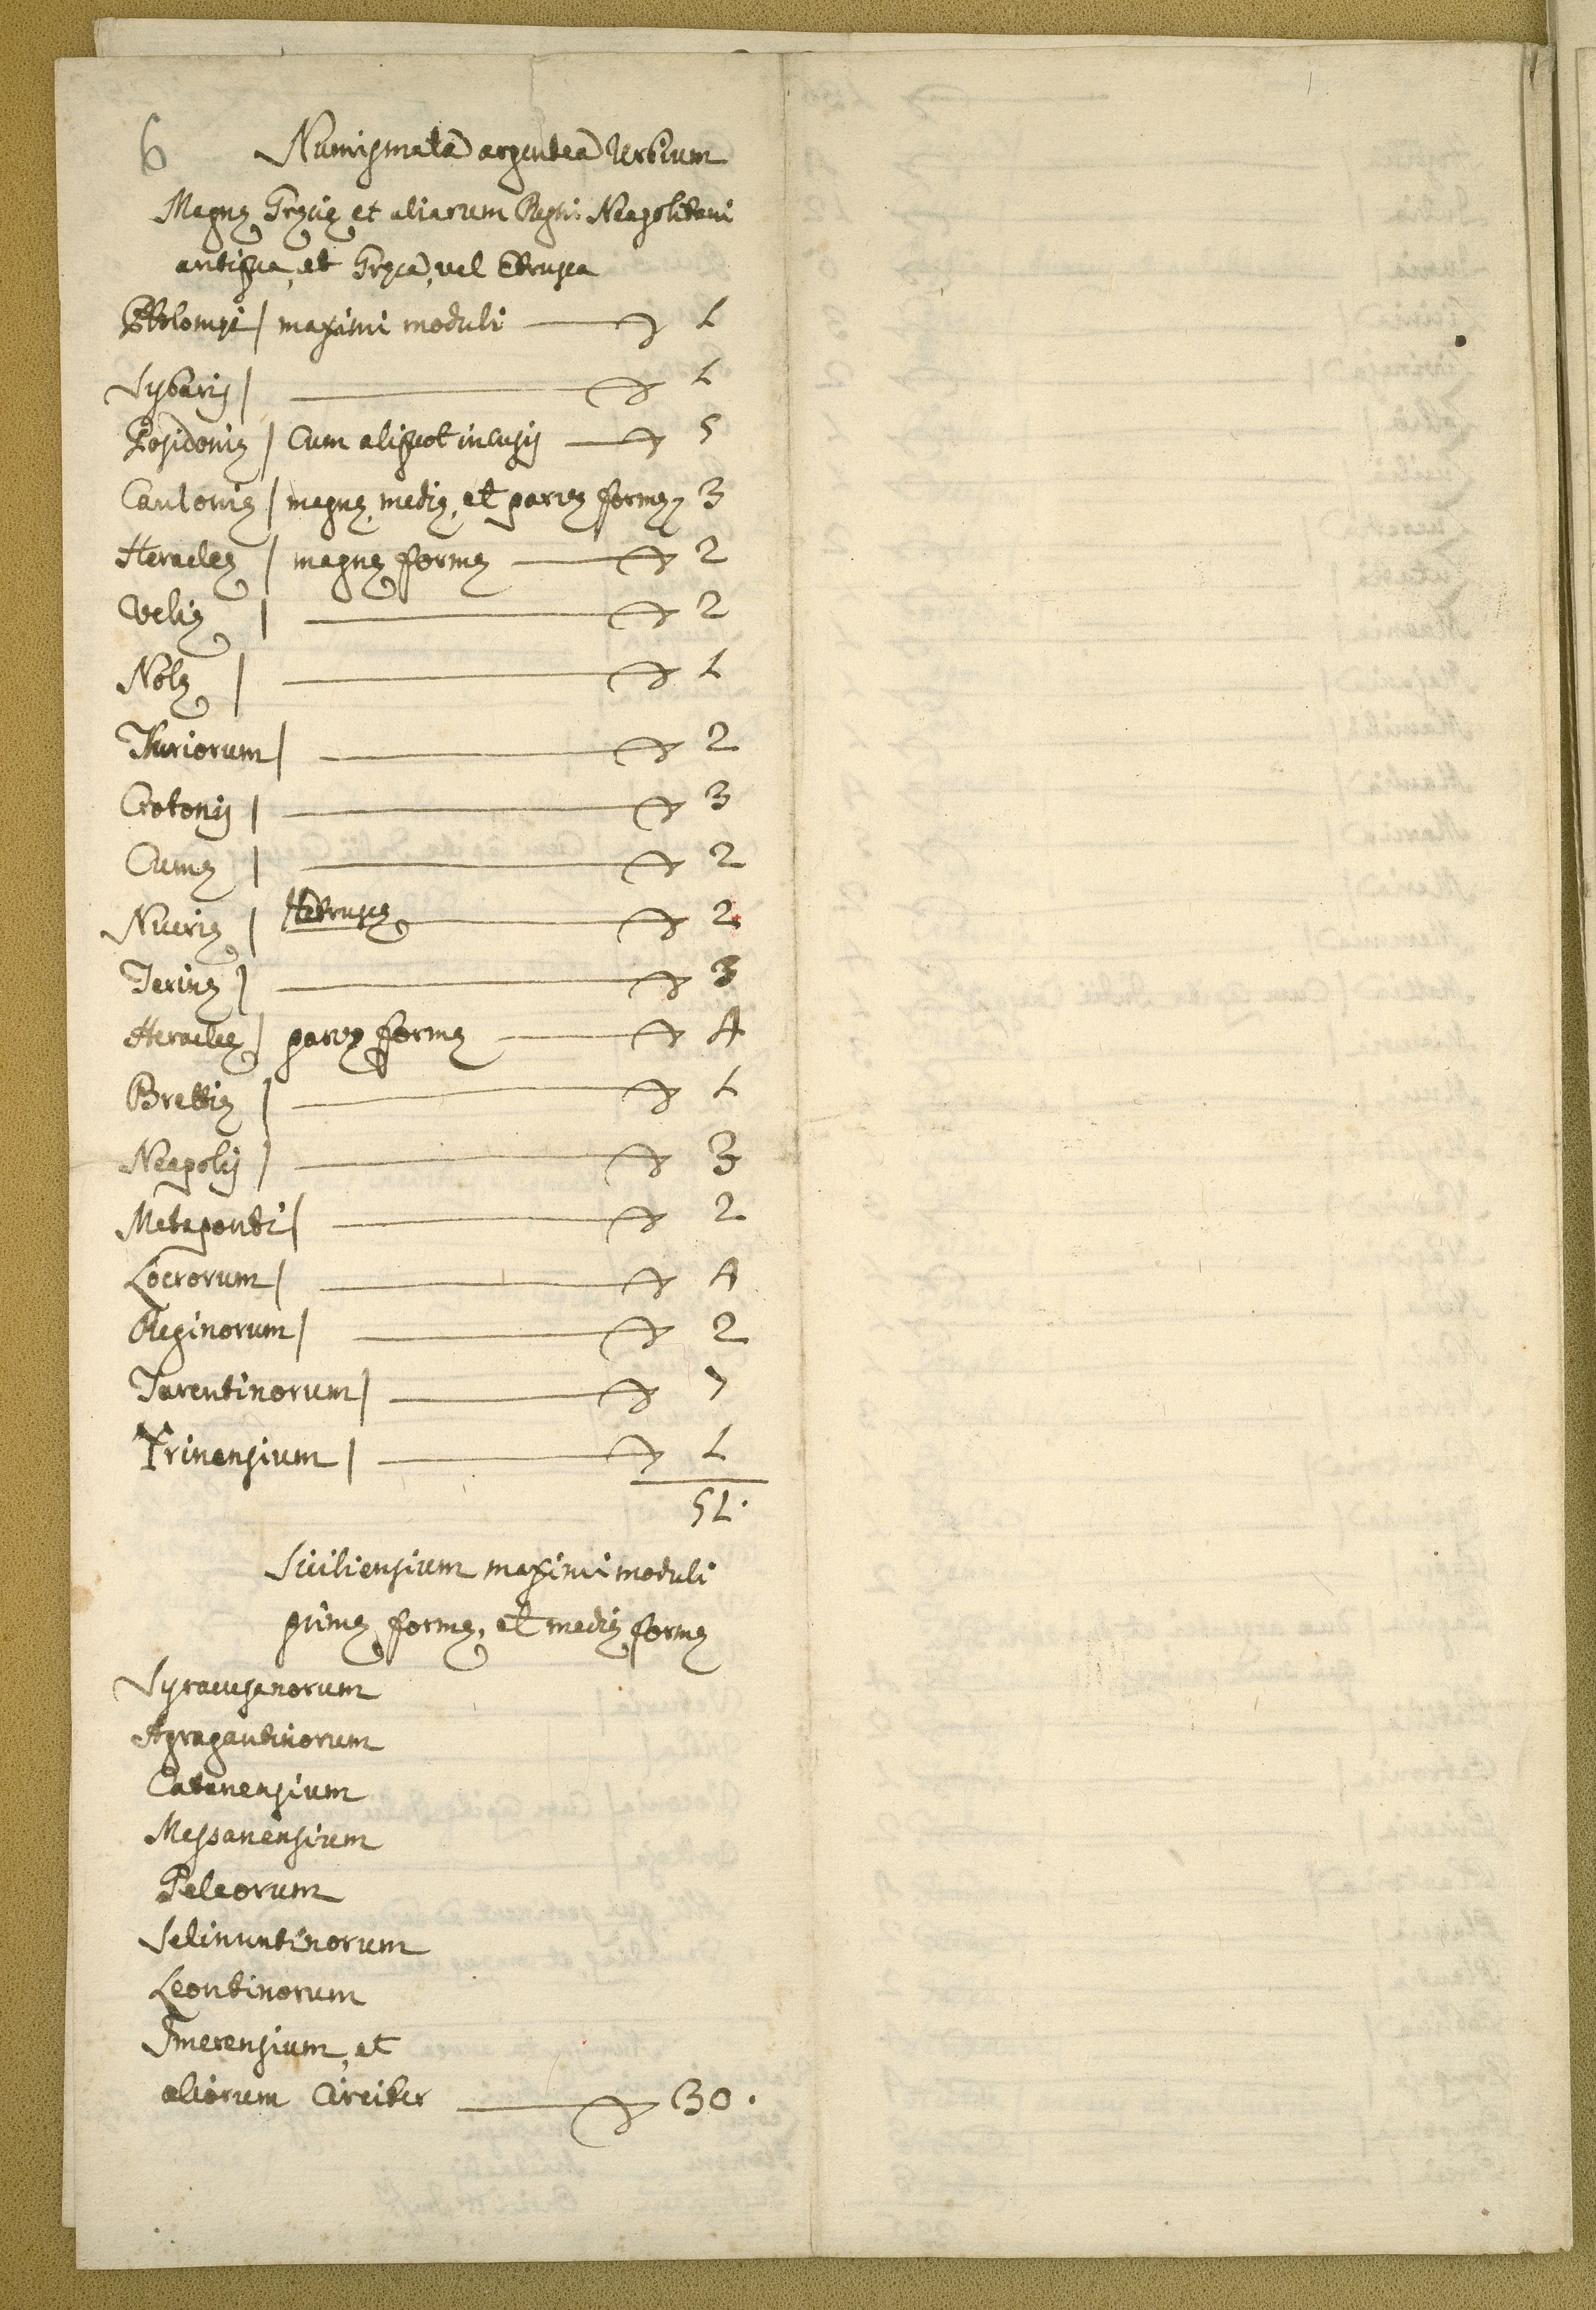 6 Numismata argentea Urbium
Magnę Gręcię et aliarum Regni Neapolitani
antiqua, et Gręca, vel Etrusca
Ptolomęi / maximi moduli 1
Sybaris / 1
Posidonię / Cum aliquot incusis 5
Caulonię / magnę, medię, et parvę formę 3
Heracleę / magnę formę 2
Velię / 2
Nolę / 1
Thuriorum / 2
Crotonis / 3
Cumę / 2
Nucrię / Hetruscę 2
Terinę / 3
Heracleę / parvę formę 4
Brettię / 1
Neapolis / 3
Metaponti / 2
Locrorum / 4
Reginorum / 2
Tarentinorum / 7
Yrinensium / 1
51.
Siciliensium maximi moduli
primę formę, et medię formę
Syracusanorum
Agragantinorum
Catanensium
Messanensium
Peleorum
Selinuntinorum
Leontinorum
Imerensium, et
aliorum Circiter 30.